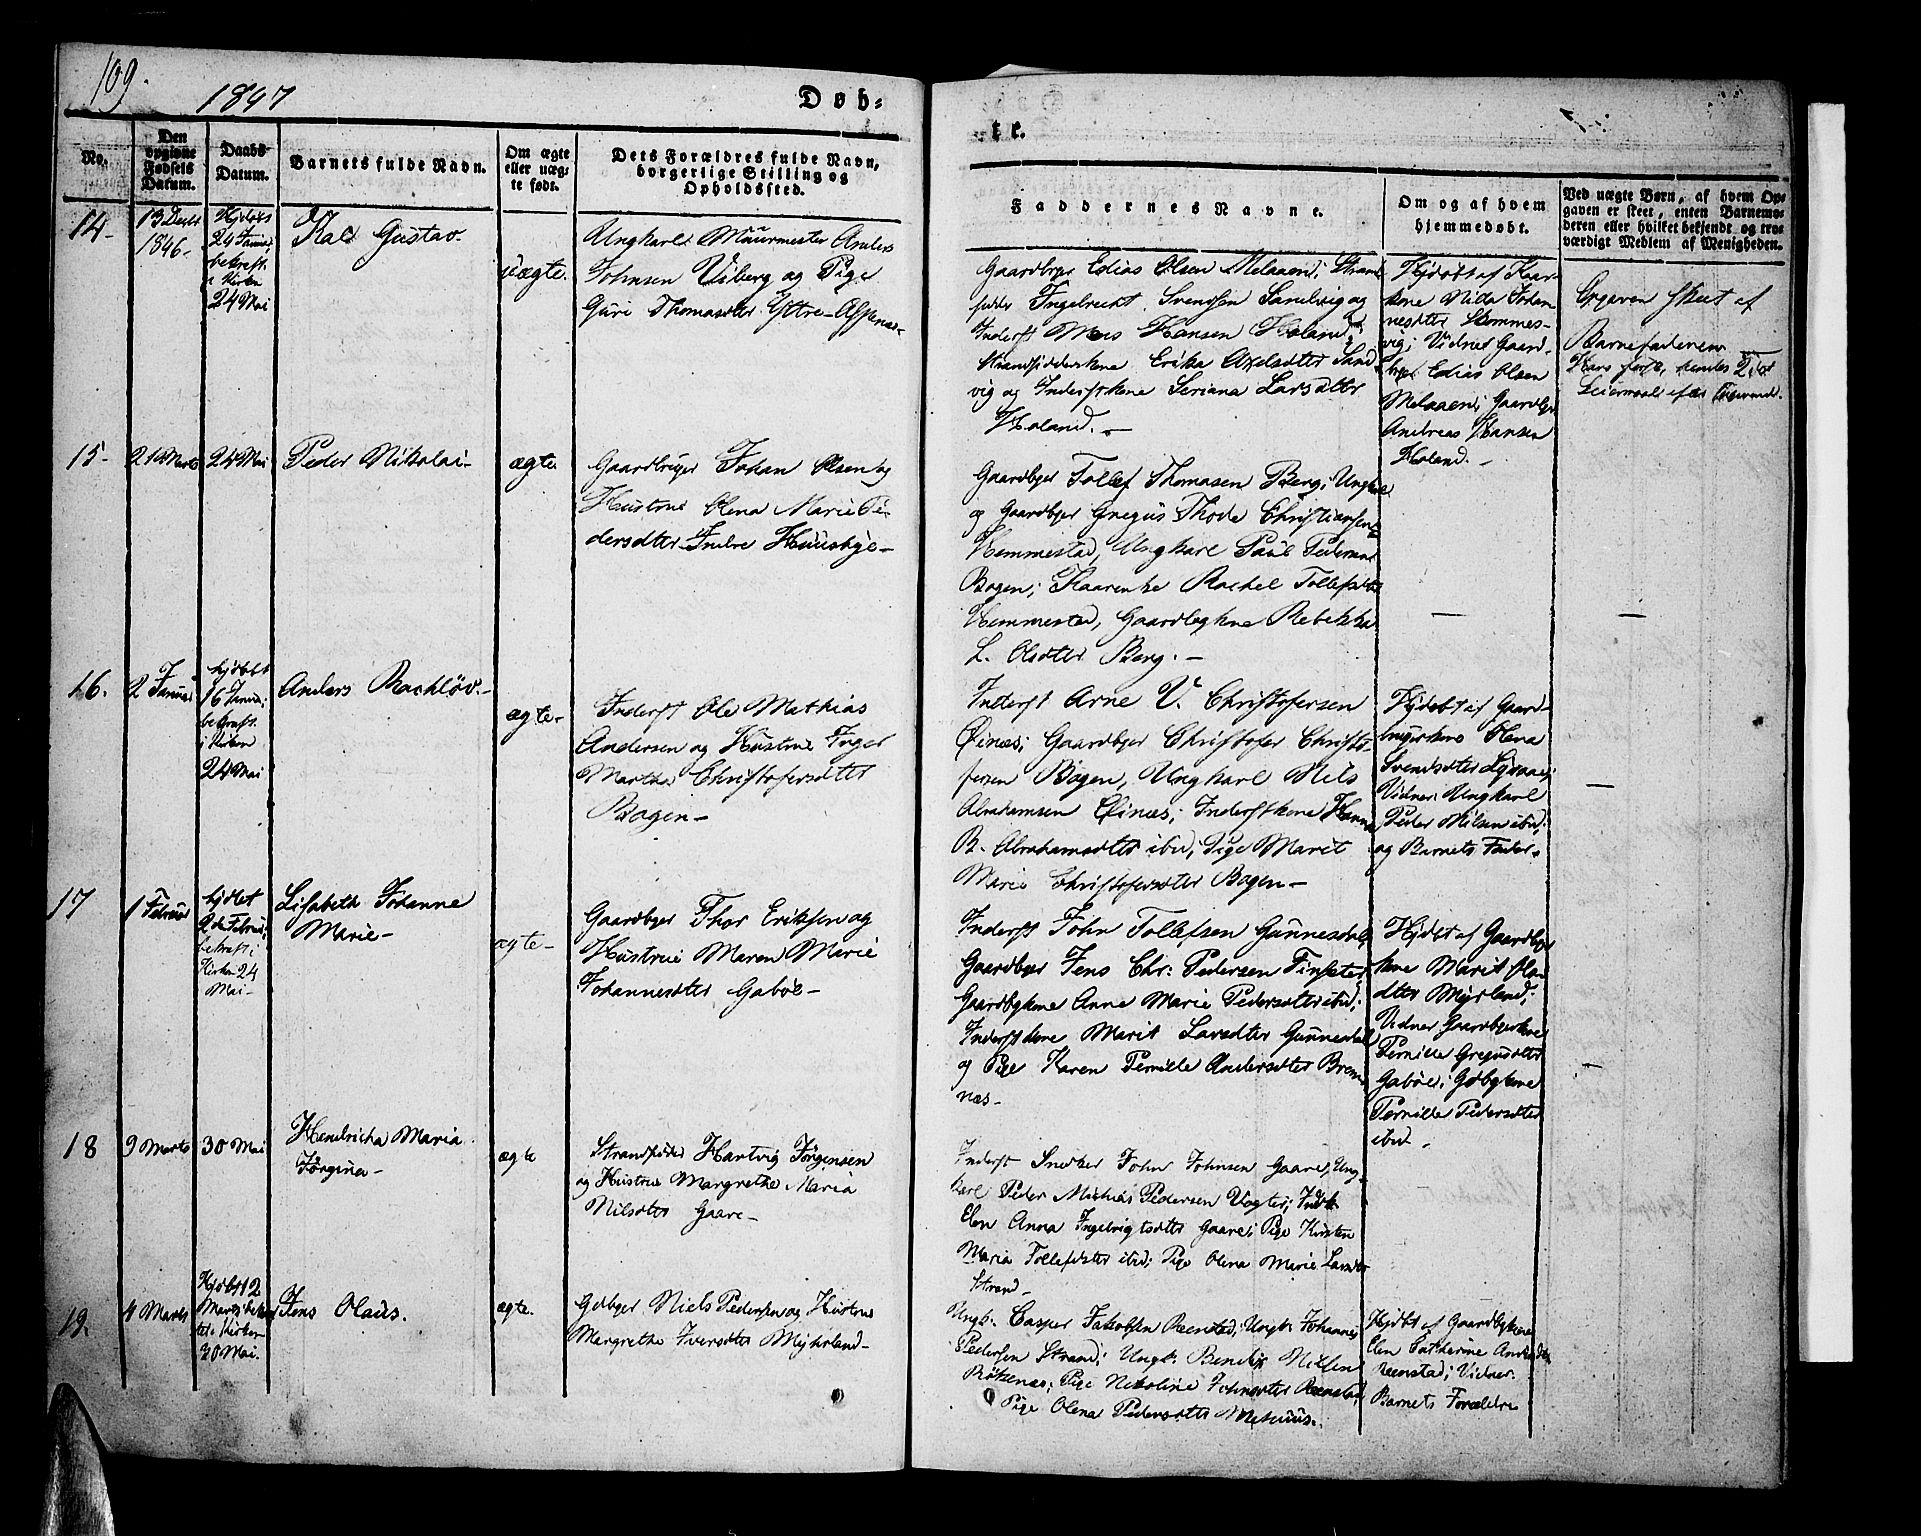 109.
1847
Døb-
te.
No.
Den opgivne Fødsels Datum.
Daabs Datum.
Barnets fulde Navn.
Om ægte eller uægte født.
Dets Forældres fulde Navn, borgerlige Stilling og Opholdssted.
Faddernes Navne.
Om og af hvem hjemmedøbt.
Ved uægte Børn, af hvem Opgaven er skeet, enten Barnemoderen eller hvilket bekjendt og troværdigt Medlem af Menigheden.
14-
13 Decbr
1846.
Hjdøbt
24 Januar,
bekræft.
i Kirken
24 Mai
Kal Gustav.
uægte.
Ungkarl Muurmester Anders
Johnsen Viberg og Pige
Guri Thomasdtter Yttre-
Gaardbgr Edias Olsen Melaaen; Strand-
sidder Ingebrecht Svendsen Sandvig og
Inderst Mons Hansen Holand;
Strandsidderskene Erika Axelsdtter Sand-
vig og Inderstkene Seriana Larsdtter
Holand. -
Hjdøbt af Kaar-
kone Nida Johan-
nesdtter Stemmes-
vig; Vidner Gaard-
bgr Edias Olsen
Melaaen; Gaardbgr
Andreas Hansen
Holand. -
Opgaven skeet af
Barnefaderen -
Hans første, hendes 2det
Leiermaal efter
15-
21 Marts
24 Mai
Peder Nikolai-
ægte.
Gaardbruger Johan Olsen og
Hustrue Olena Marie Pe-
dersdtter Indre Huusbye-
Gaardbgr Tollef Thomasen Berg; Ungkarl
og Gaardbgr Gregus Thode Christiansen
Hemmestad, Ungkarl Paul Pedersen
Bogen; Kaarenke Rachel Tollefsdtter
Hemmestad, Gaardbgkone Rebekka
L. Olsdtter Berg. -
-
-
16.
2 Januar
hjdøbt
16 Januar,
bekræft.
i Kirken
24 Mai
Anders Rachløv.-
ægte-
Inderst Ole Mathias
Andersen og Hustrue Inger
Martha Christofersdtter
Bogen-
Inderst Arne V. Christofersen
Øinæs; Gaardbgr Christofer Christo-
fersen Bogen, Ungkarl Nils
Abrahamsen Øinæs; Inderstkone Hanna
B. Abrahamsdtter ibid; Pige Marit
Marie Christofersdtter Bogen-
Hjdøbt af Gaard-
brugerkone Olena
Svendsdtter
Vidner: Ungkarl
Peder Nilsen ibid;
og Barnets Fader-
-
17
1 Februar
hjdøbt
2de Februar;
bekræft i
Kirken 24
Mai-
Lisabeth Johanne
Marie-
ægte-
Gaardbgr Thor Eriksen og
Hustrue Maren Marie
Johannesdtter Gabøe-
Inderst John Tollefsen Gunnesdal,
Gaardbgr Jens Chr: Pedersen Finsæter,
Gaardbgkone Anne Marie Pedersdtter ibid;
Inderstkone Marit Larsdtter Gunnesdal
og Pige Karen Pernille Andersdtter Brem-
næs-
Hjdøbt af Gaardbgr
kone Marit Ola-
dtter Myrland;
Vidner Gaardbgrkone
Pernille Gregusdtter
Gabøe; Gdbgkone
Pernille Pedersdtter
ibid -
-
18
9 Marts
30 Mai
Hendricha Maria
Jørgina-
ægte
Strandsidder Hartvig Jørgensen
og Hustrue Margrethe Maria
Nilsdtter Gaare-
Inderst Snedker John Johnsen Gaare; Ung-
karl Peder Mathias Pedersen Vogtei; Indstk
Elen Anna Ingebrigtsdtter Gaare; Pige Kirsten
Maria Tollefsdtter ibid; Pige Olena Marie Larsdtter
Strand-
19.
4 Marts
Hjdøbt 12
Marts bekræf-
tet i Kirken
30 Mai.
Jens Olaus.
ægte.
Gdbgr Niels Pedersen og Hustrue
Margrethe Iversdtter Myhrland-
Ungk. Casper Jakobsen Reenstad; Ungk Johannes
Pedersen Strand; Ungk: Bendix Nilsen
Røkenæs; Pige Nikoline Johnsdtter Reenstad;
Pige Olena Pedersdtter Melhuus.
Hjdøbt af Gaardbgkone
Elen Cathrine Andersdtter
Reenstad; Vidner:
Barnets Forældre